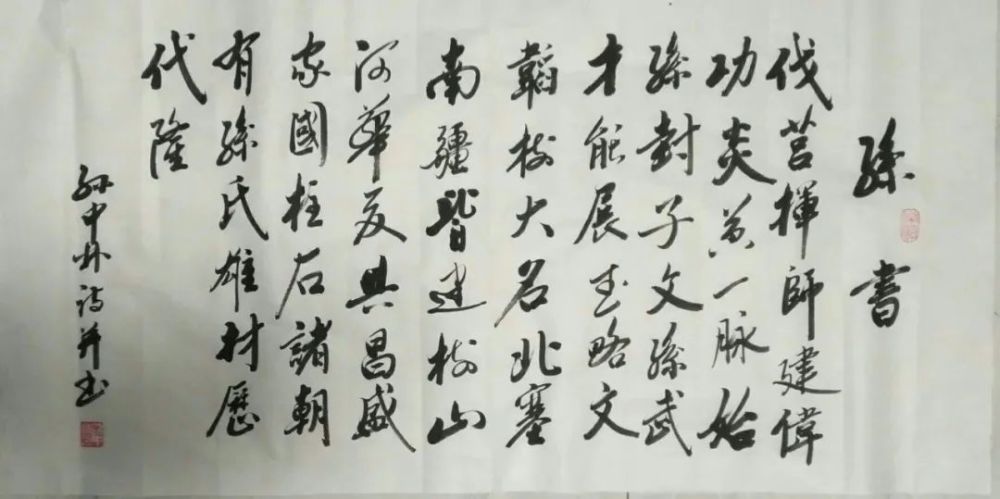 孫書
伐莒揮師建偉
功炎黃一脈始
孫封子文孫武
才能展武略文
韜樹大名北塞
南疆皆建樹山
河華夏具昌盛
家國柱石諸朝
有孫氏雄材歷
代隆
孙中林诗并书